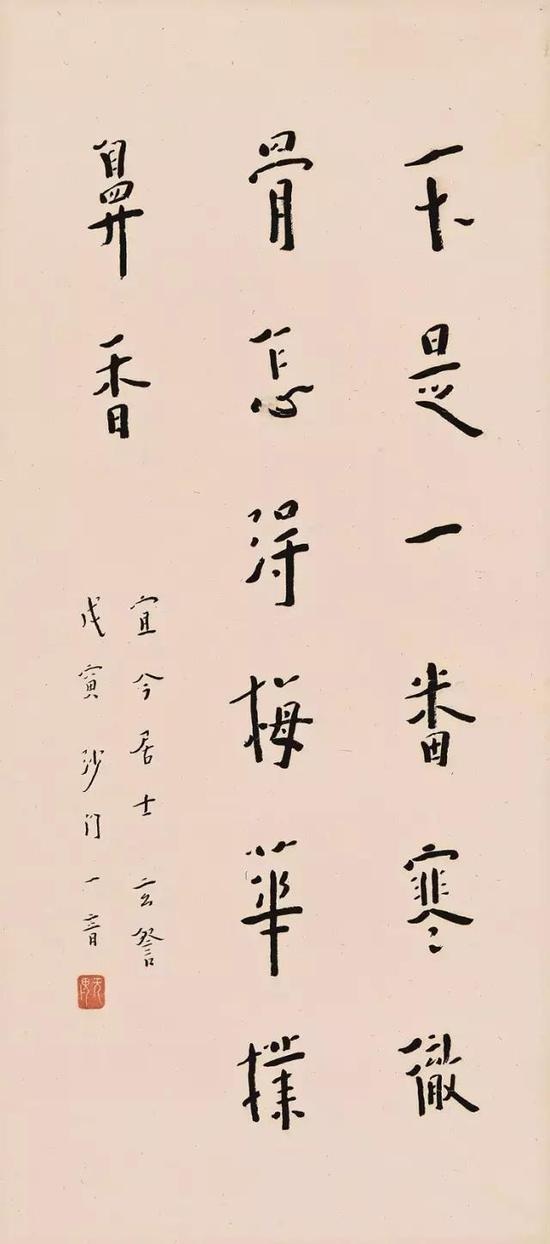 不是一番寒徹
骨怎得梅華撲
鼻香
宜今居士 詧
戊寅沙门一音